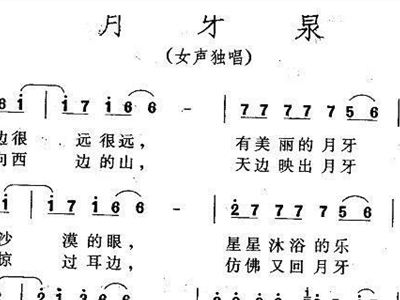 月牙泉
(女声独唱)
6 i | i 7 i 6 6 - | 7 7 7 7 7 7 5 6 |
边很 远很远, 有美丽的月牙
向西 边的山, 天边映出月牙
i 6 | i 7 i 6 6 - | 2 7 7 7 7 5 6 |
漠的眼, 星星沐浴的乐
掠 过耳边, 仿佛又回月牙